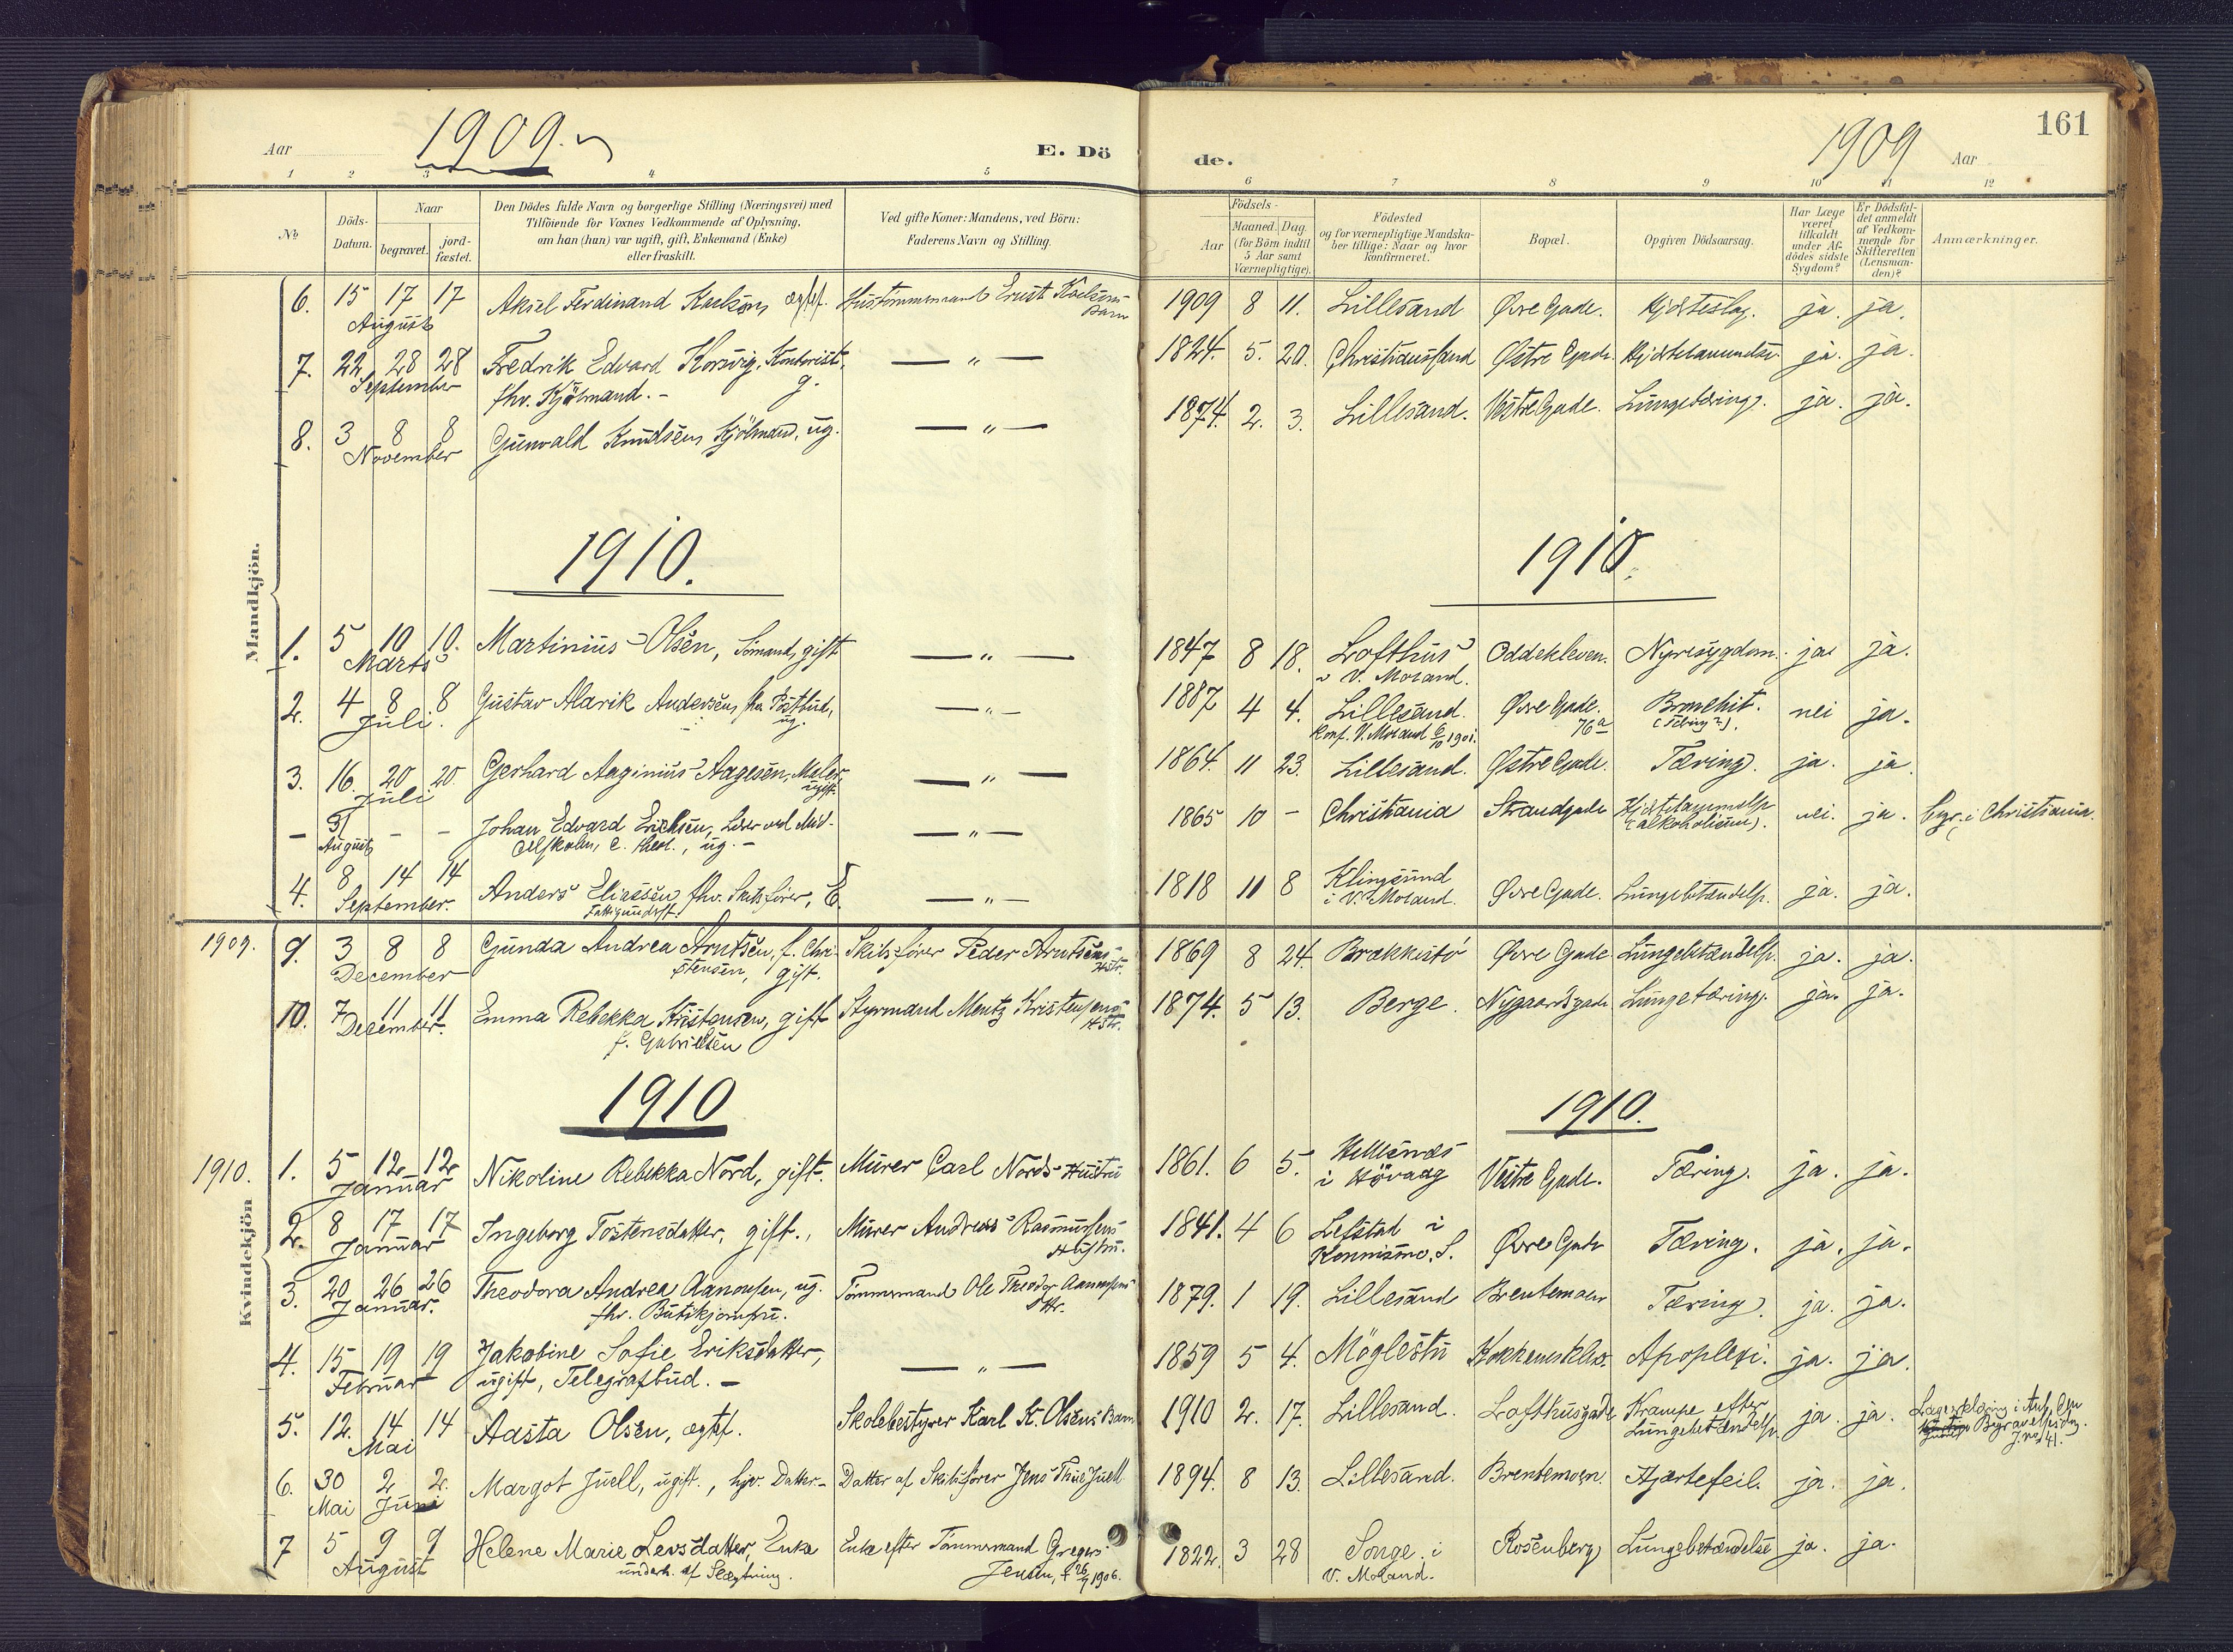 161
Aar 1909. E. Dö de. 1909 Aar
1 2 3 4 5 6 7 8 9 10 11 12
No. Döds-Datum. Naar begravet. jord-fæstet.
Den Dödes fulde Navn og borgerlige Stilling (Næringsvei) med
Tilföiende for Voxnes Vedkommende af Oplysning,
om han (hun) var ugift, gift, Enkemand (Enke)
eller fraskilt.
Ved gifte Koner: Mandens, ved Börn:
Faderens Navn og Stilling.
Födsels-
Aar Maaned. Dag.
(for Börn indtil
5 Aar samt
Værnepligtige).
Födested
og for værnepligtige Mandska-
ber tillige: Naar og hvor
konfirmeret.
Bopæl.
Opgiven Dödsaarsag.
Har Læge
været
tilkaldt
under Af-
dödes sidste
Sygdom?
Er Dödsfal-
det anmeldt
af Vedkom-
mende for
Skifteretten
(Lensman-
den)?
Anmærkninger.
Mandkjön.
6. 15 17 17 Aksel Ferdinand Karlsen, ægtef. Ernst Karlsens 1909 8 11. Lillesand Øvre Gade. Hjerteslag. ja. ja.
August Barn
7. 22 28 28 Fredrik Edvard Korsvig, Kontorist, — " — 1824. 5. 20. Christianssand Østre Gade. ja. ja.
September fhv. Kjöbmand. - g.
8. 3 8 8 Gunvald Knudsen, Kjöbmand, ug. — " — 1874. 2. 3. Lillesand. Vestre Gade. Lungetæring. ja. ja.
November
1910. 1910.
1. 5 10 10. Martinius Olsen, Sömand, gift — " — 1847 8 18. Lofthus Oddekleven. Nyresygdom. ja. ja.
Marts V. Moland.
2. 4 8 8 Gustav Alarik Andersen, Postbud, — " — 1887 4 4. Lillesand. Øvre Gade. Bronchit. nei ja.
Juli. ug. Konf. V. Moland 6/10 1901. 76a (Tæring?).
3. 16. 20 20. Gerhard Aaginius Aagesen, Maler, — " — 1864. 11 23. Lillesand. Østre Gade. Tæring. ja. ja.
Juli ugift
— 31 — — Johan Edvard Erichsen, Lærer ved Mid- — " — 1865 10 - Christiania Strandgade nei. ja. begr. i Christiania.
August delskolen, c. theol., ug. - (alkoholisme).
4. 8 14 14 Anders Eliassen, fhv. Skibsförer, E. — " — 1818 11 8 Klingsund Øvre Gade. Lungebetændelse. ja. ja.
September. Fattigunderst. i V. Moland.
1909. 9. 3 8 8 Gunda Andrea Arntsen, f. Chri- Skibsförer Peder Arntsens 1869 8 24. Brækkestö Øvre Gade Lungebetændelse. ja. ja.
December stensen, gift. Hstr.
10. 7 11 11 Emma Rebekka Kristensen, gift Styrmand Mentz Kristensens 1874. 5 13. Berge. Nygaardsgade Lungetæring. ja. ja.
December. f. Gabrielsen Hstr.
1910 1910.
Kvindekjön
1910. 1. 5 12 12 Nikoline Rebekka Nord, gift. Murer Carl Nords Hustru 1861. 6 5. Hellesnæs Vestre Gade. Tæring. ja. ja.
Januar i Hövaag
2. 8 17 17 Ingeborg Tostensdatter, gift., Murer Andreas Rasmussens 1841. 4 6 Lefstad i Øvre Gade Tæring. ja. ja.
Januar Hustru. Konnismo, S.
3. 20 26 26 Theodora Andrea Aanonsen, ug. Tömmermand Ole Theodor Aanonsens 1879. 1 19. Lillesand Brentemoen Tæring. ja. ja.
Januar. fhv. Butikjomfru. Dtr.
4. 15 19 19 Jakobine Sofie Eriksdatter, — " — 1859 5 4. Möglestu Kokkenesklev. Apoplexi. ja. ja.
Februar ugift, Telegrafbud. -
5. 12. 14 14 Aasta Olsen, ægtef. Skolebestyrer Karl K. Olsens Barn 1910 2. 17. Lillesand. Lofthusgade Krampe efter ja. ja. Lægeerklæring i Anl. den
Mai Lungebetændelse Begravelsesdag.
J.no 41.
6. 30 2 2. Margot Juell, ugift., hjv. Datter. - Datter af Skibsförer Jens Thue Juell 1894. 8 13. Lillesand. Brentemoen. Hjertefeil. ja. ja.
Mai Juni
7 5 9 9 Helene Marie Levsdatter, Enke Enke efter Tömmermand Gregers 1822. 3 28 Songe i Rosenberg Lungebetændelse ja. ja.
August underh. af Slægtning. Jensen, † 26/9 1906. V. Moland.